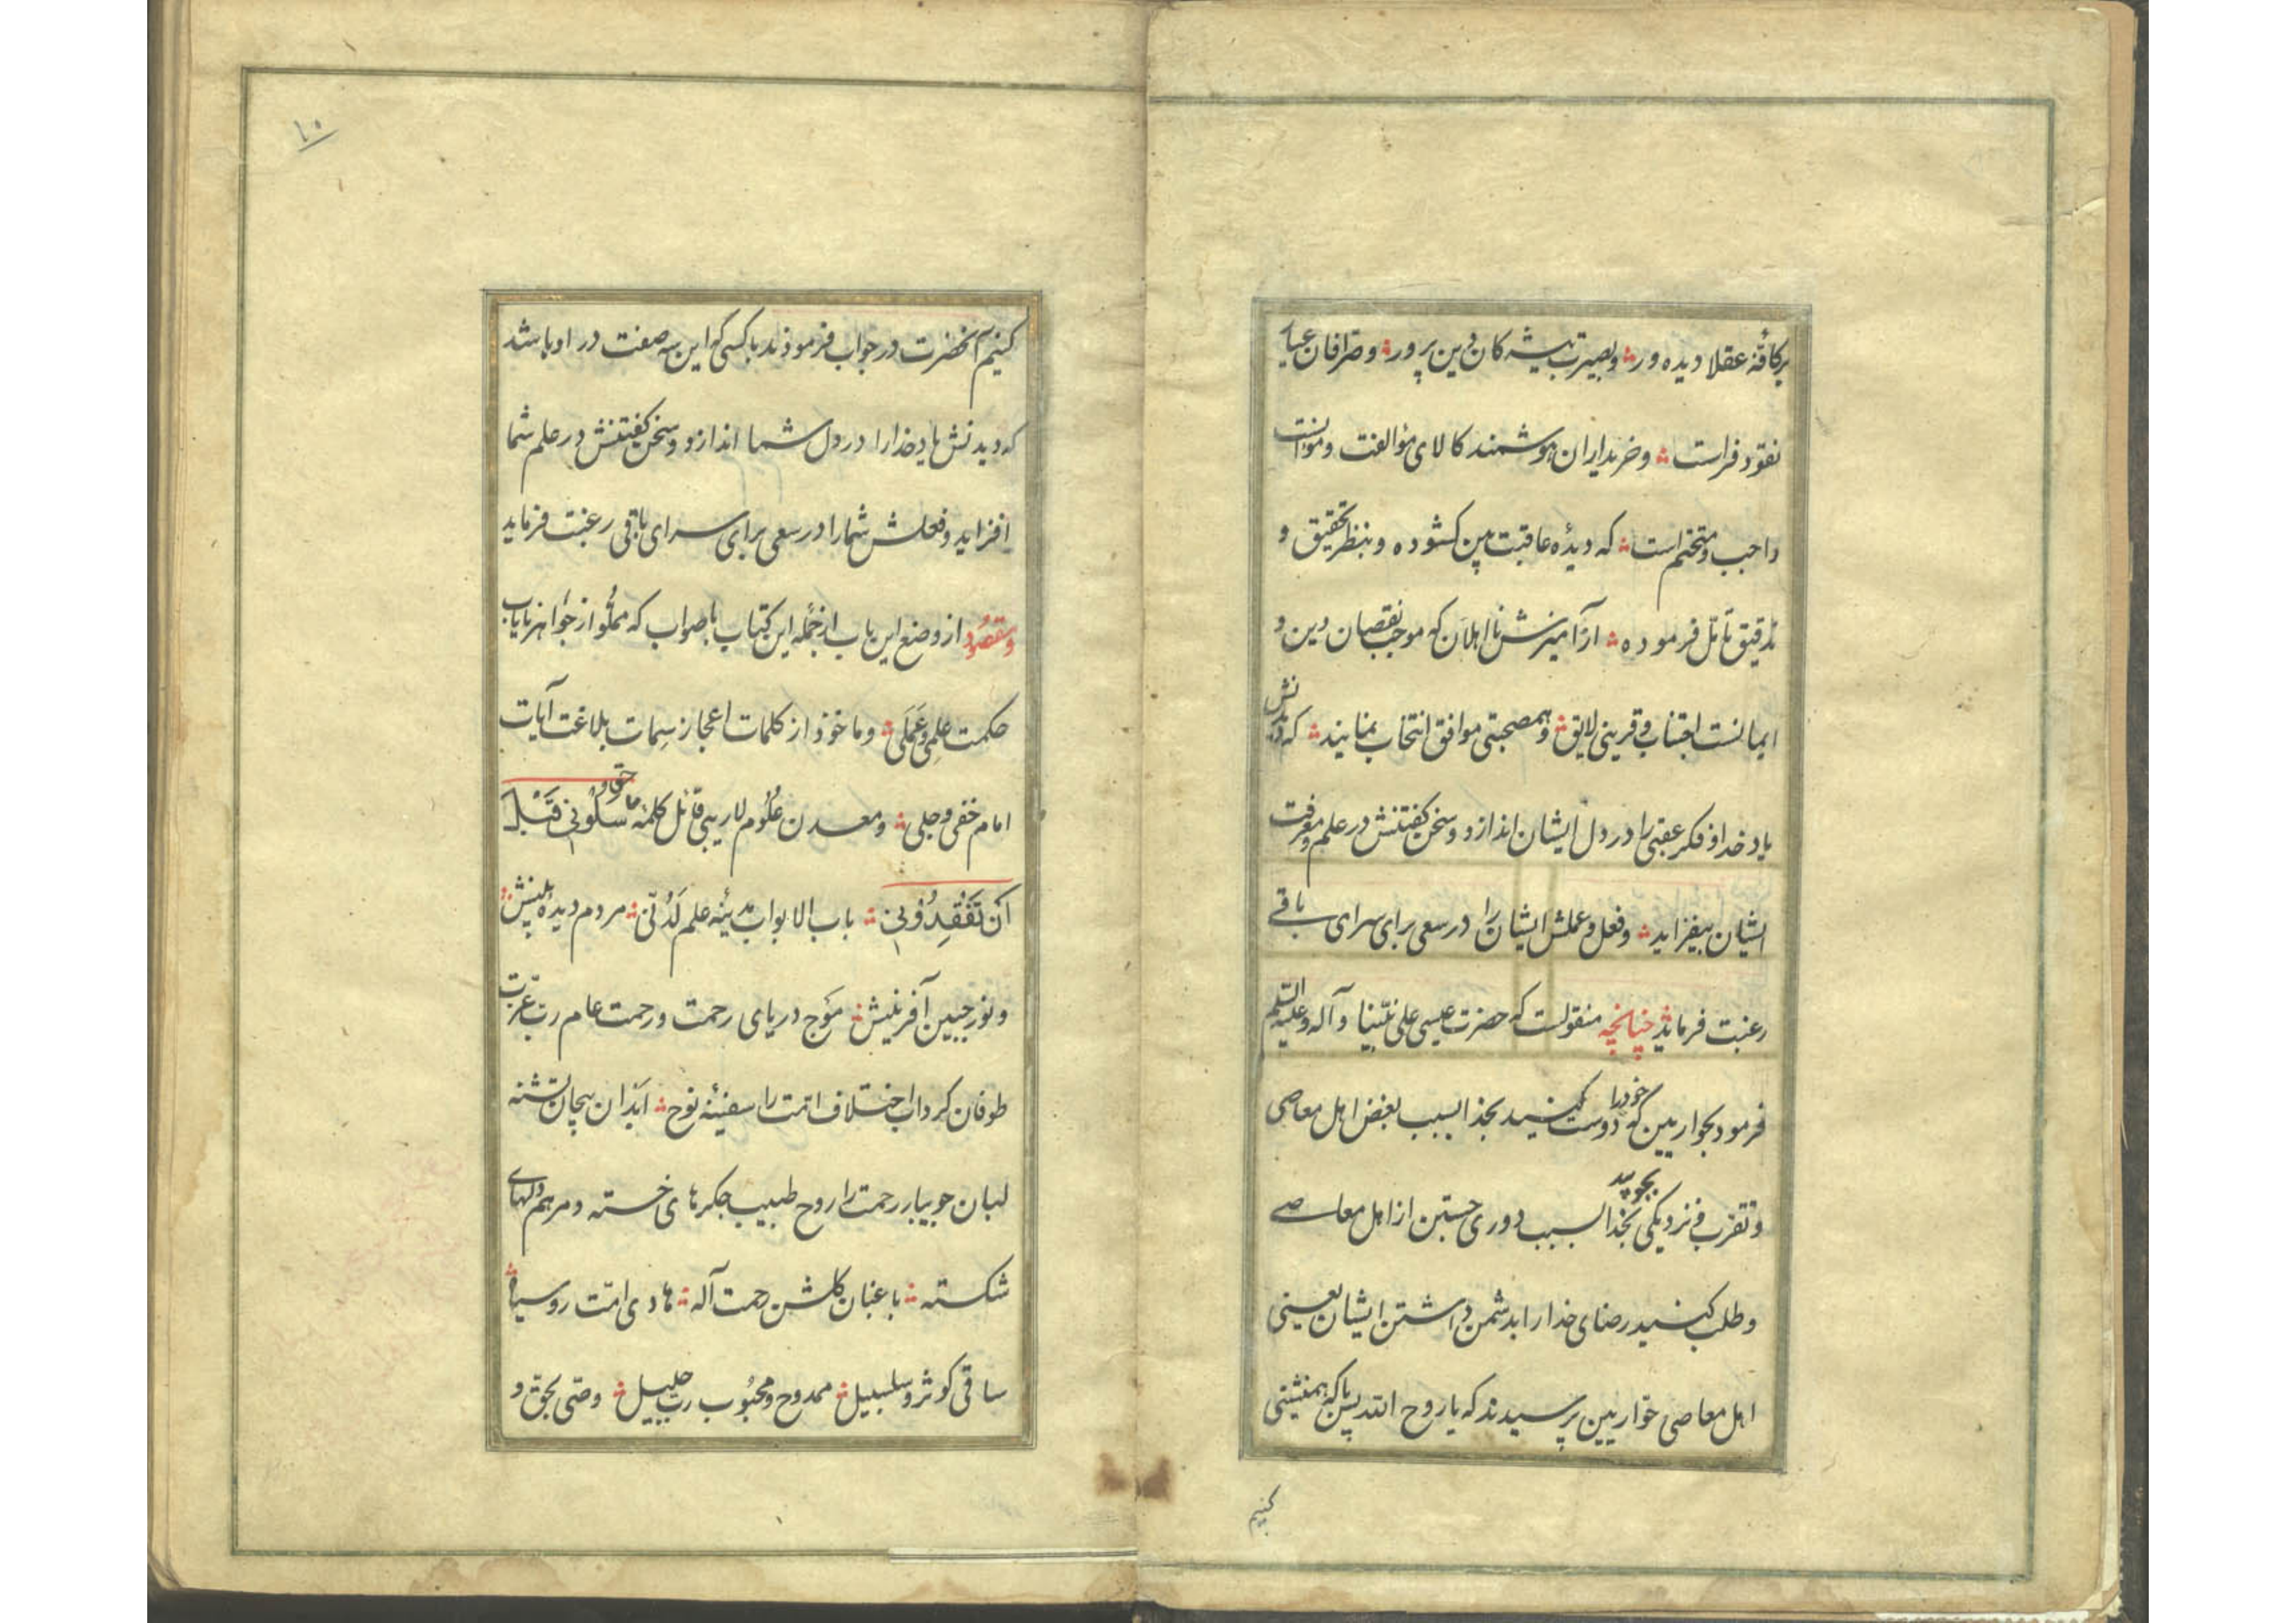 برکافّهٔ عقلا دیده ور و بصیرت پیشه کان دین پرور و صرّافان عیار
نقود فراست و خریداران هوشمند کالای مؤالفت و موانست
واجب و متحتم است که دیدهٔ عاقبت بین کشوده و بنظر تحقیق و
تدقیق تأمّل فرموده از آمیزش نااهلان که موجب نقصان دین و
ایمانست اجتناب و قرینی لایق و همصحبتی موافق انتخاب نمایند که دیدنش
یاد خدا و فکر عقبی را در دل ایشان اندازد و سخن کفتنش در علم و معرفت
ایشان بیفزاید و فعل و عملش ایشان را در سعی برای سرای باقے
رغبت فرماید چنانچه منقولست که حضرت عیسی علی نبیّنا و آله و علیه السلم
فرمود بحواریین که خودرا دوست کنید بخدا بسبب بغض اهل معاصی
و تقرب و نزدیکی بجویید بخدا بسبب دوری جستن از اهل معاصے
و طلب کنید رضای خدا را بدشمن داشتن ایشان یعنی
اهل معاصی حوّاریین پرسیدند که یا روح الله پس با که همنشینی
کنیم
۱۰
کنیم آنحضرت در جواب فرمودند با کسی که این سه صفت در او باشد
که دیدنش یاد خدا را در دل شما اندازد و سخن کفتنش در علم شما
افزاید و فعلش شما را در سعی برای سرای باقی رغبت فرماید
و مقصود از وضع این باب از جمله این کتاب باصواب که مملُو از جواهر نایاب
حکمت علمی و عَمَلی و ماخوذ از کلمات اعجاز سِمات بلاغت آیات
امام خفی و جلی و معدن علُوم لاریبی قائل کلمهٔ حق و سَلُونی قَبْلَ
اَن تَفْقِدُونی باب الابواب مدینهٔ علم لَدُنّی مردم دیدهٔ بینش
و نور جبین آفرینش مَوج دریای رحمت و رحمت عام ربّ عزّت
طوفان کرداب اختلاف امّت را سفینهٔ نوح ابدان بیجان تشنه
لبان جویبار رحمت را روح طبیب جکرهای خسته و مرهم دلهای
شکسته باغبان کلشن رحمت آله هادی امّت روسیاه
ساقی کوثر و سلسبیل ممدوح و محبُوب ربّ جلیل وصّی بحقّ و